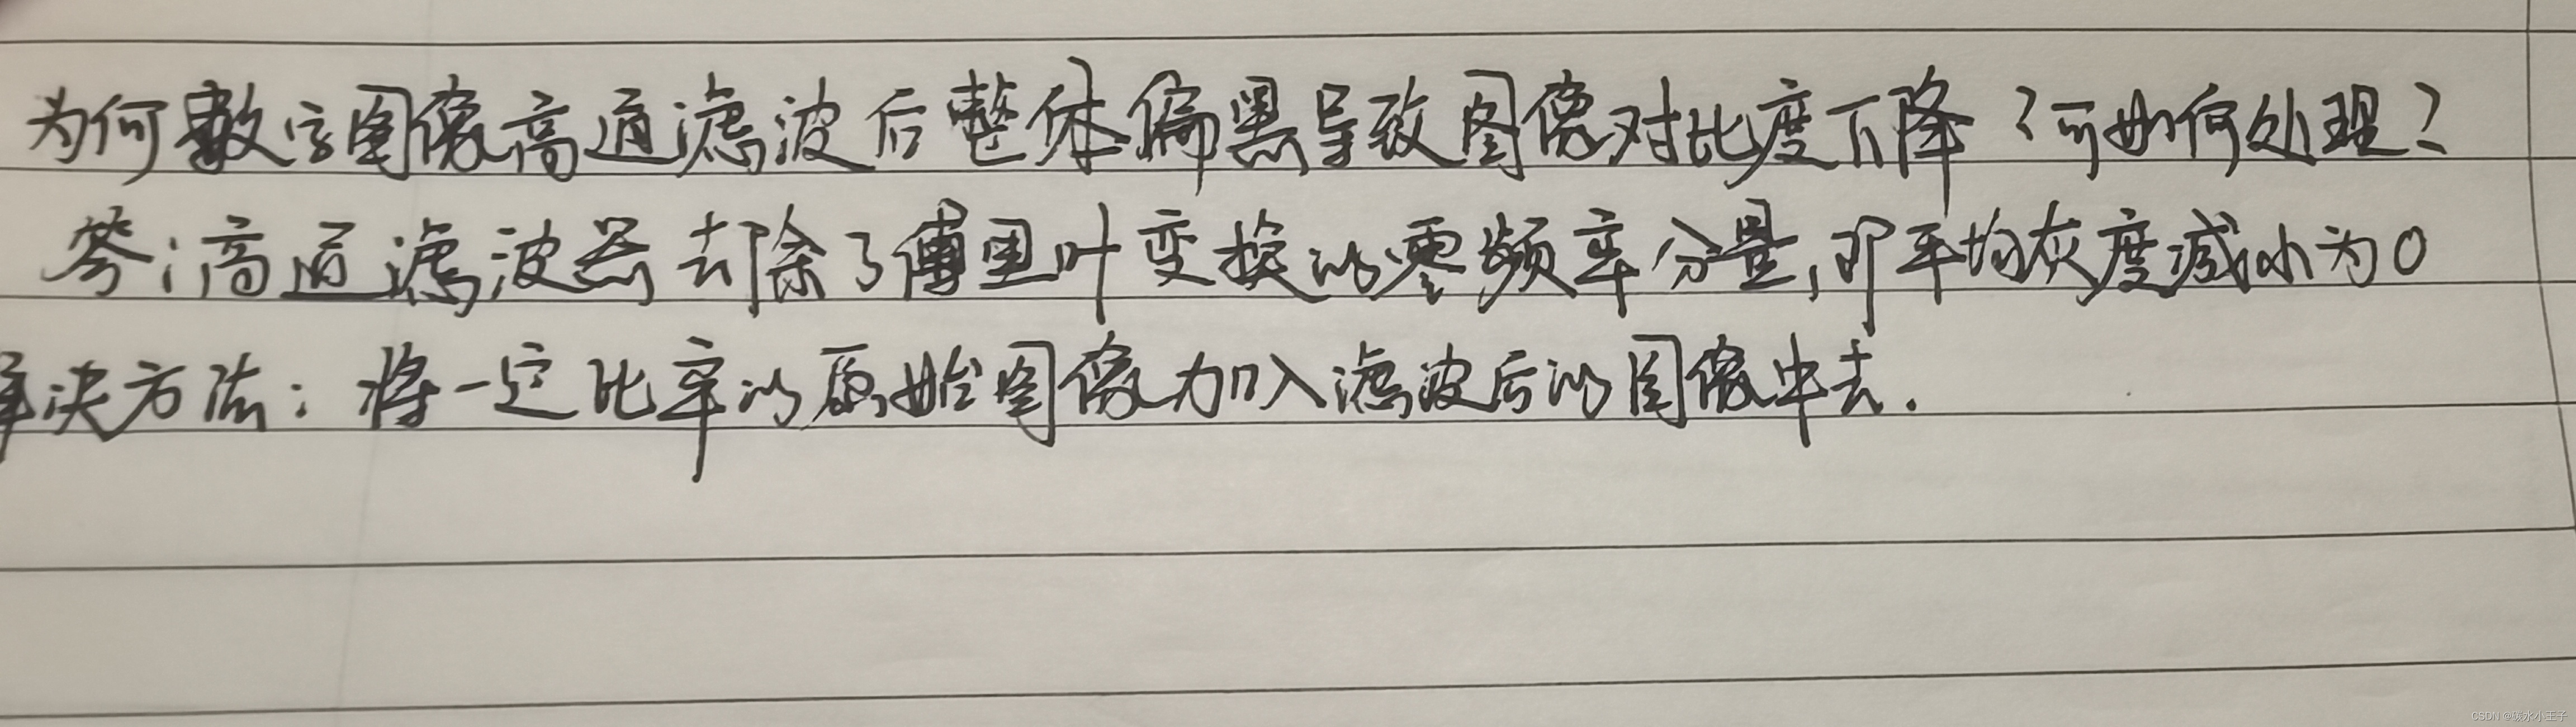 为何数字图像高通滤波后整体偏黑导致图像对比度下降？可如何处理？
答：高通滤波器去除了傅里叶变换的零频率分量，即平均灰度减小为0
解决方法：将一定比率的原始图像加入滤波后的图像中去.